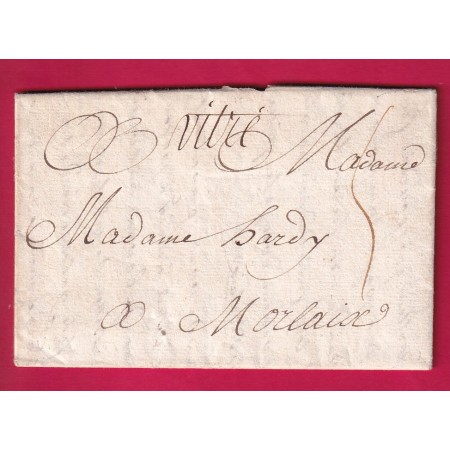 A vitré Madame
Madame hardy
A Morlaix